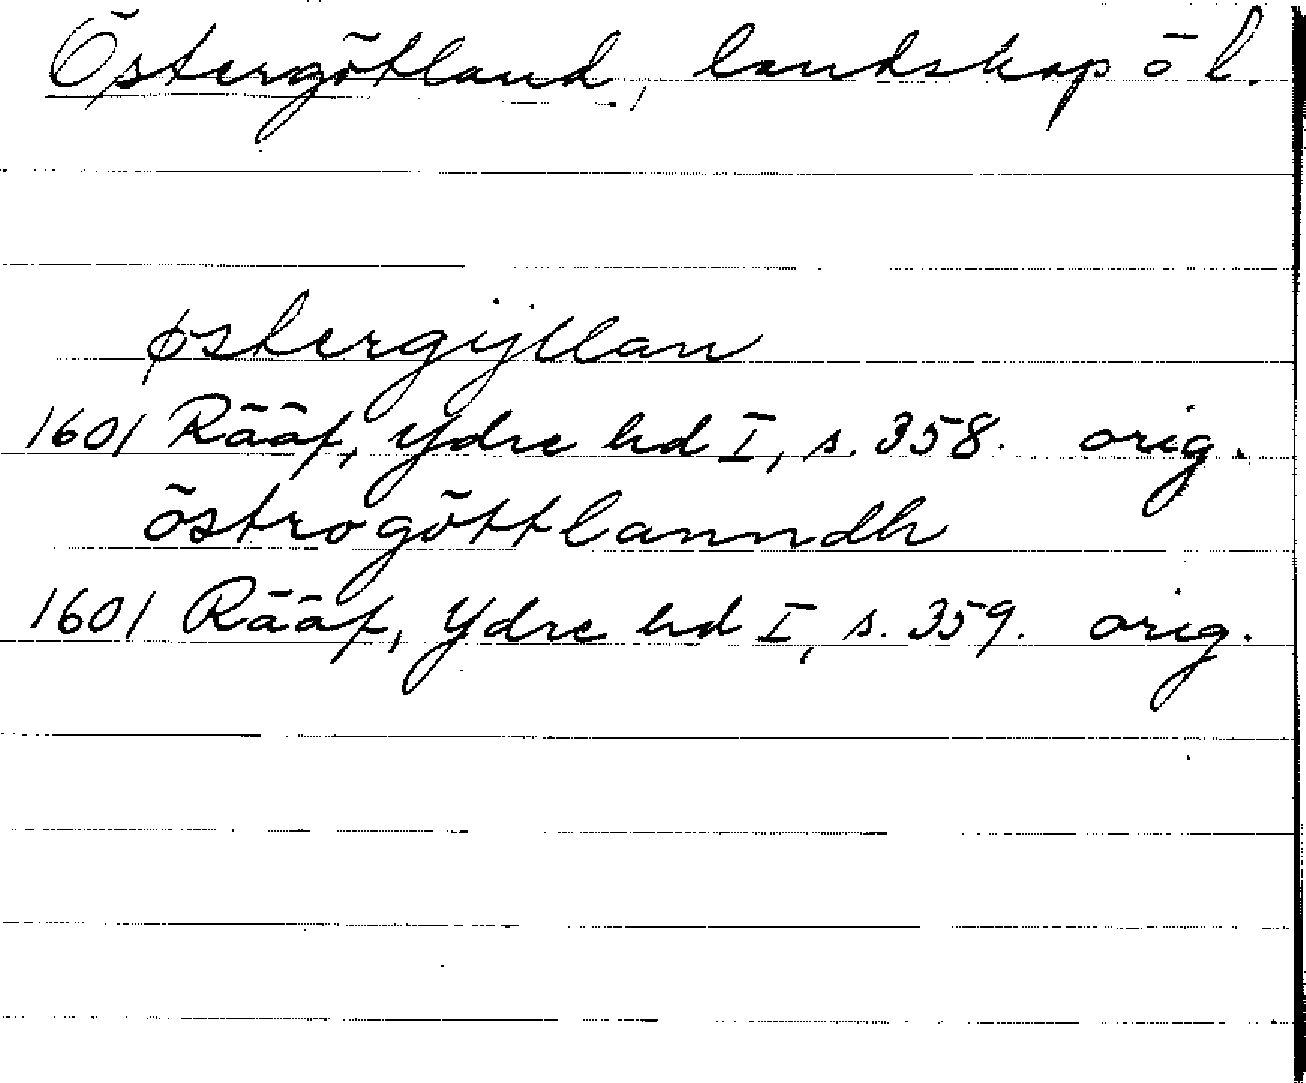 Östergötland, landskap o l.
østergijllan
1601 Rääf, Ydre hd I, s. 358. orig.
östrogöttlanndh
1601 Rääf, Ydre hd I, s. 359. orig.